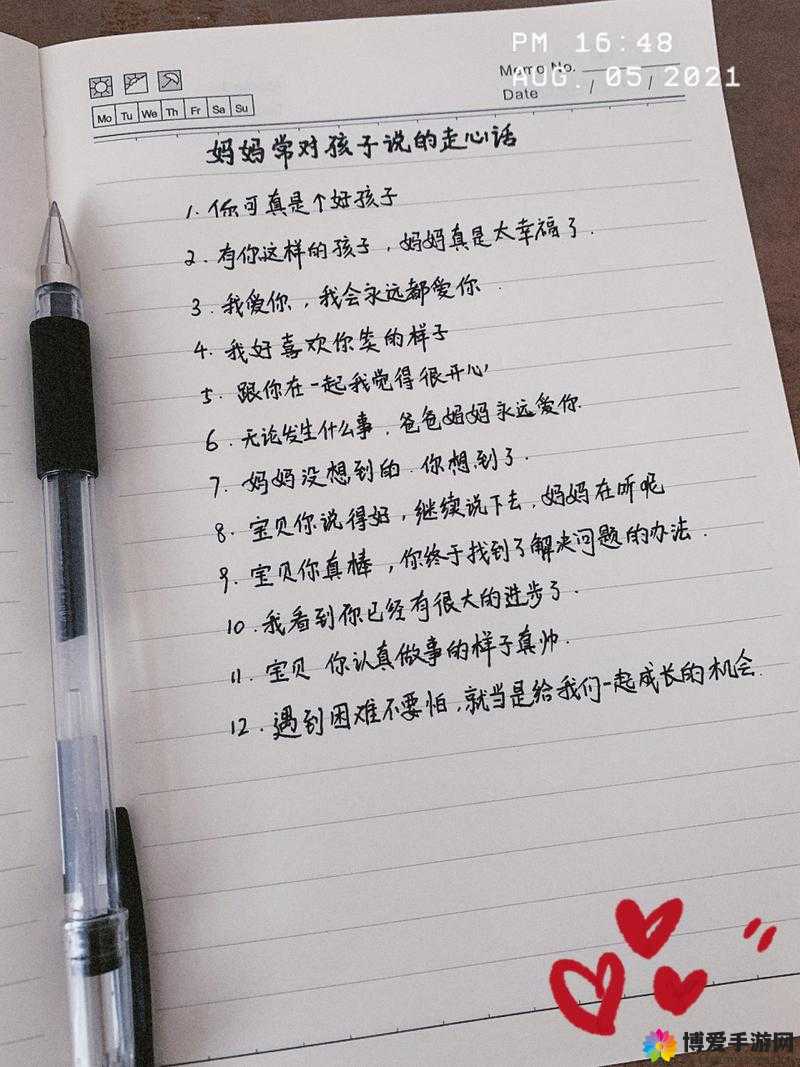 PM 16:48
Memo No.
AUG. 05 2021
Date / /
Mo Tu We Th Fr Sa Su
妈妈常对孩子说的走心话
1. 你可真是个好孩子
2. 有你这样的孩子，妈妈真是太幸福了.
3. 我爱你，我会永远都爱你.
4. 我好喜欢你笑的样子
5. 跟你在一起我觉得很开心
6. 无论发生什么事，爸爸妈妈永远爱你.
7. 妈妈没想到的.你想到了.
8. 宝贝你说得好，继续说下去，妈妈在听呢
9. 宝贝你真棒，你终于找到了解决问题的办法.
10. 我看到你已经有很大的进步了.
11. 宝贝 你认真做事的样子真帅.
12. 遇到困难不要怕，就当是给我们一起成长的机会.
博爱手游网